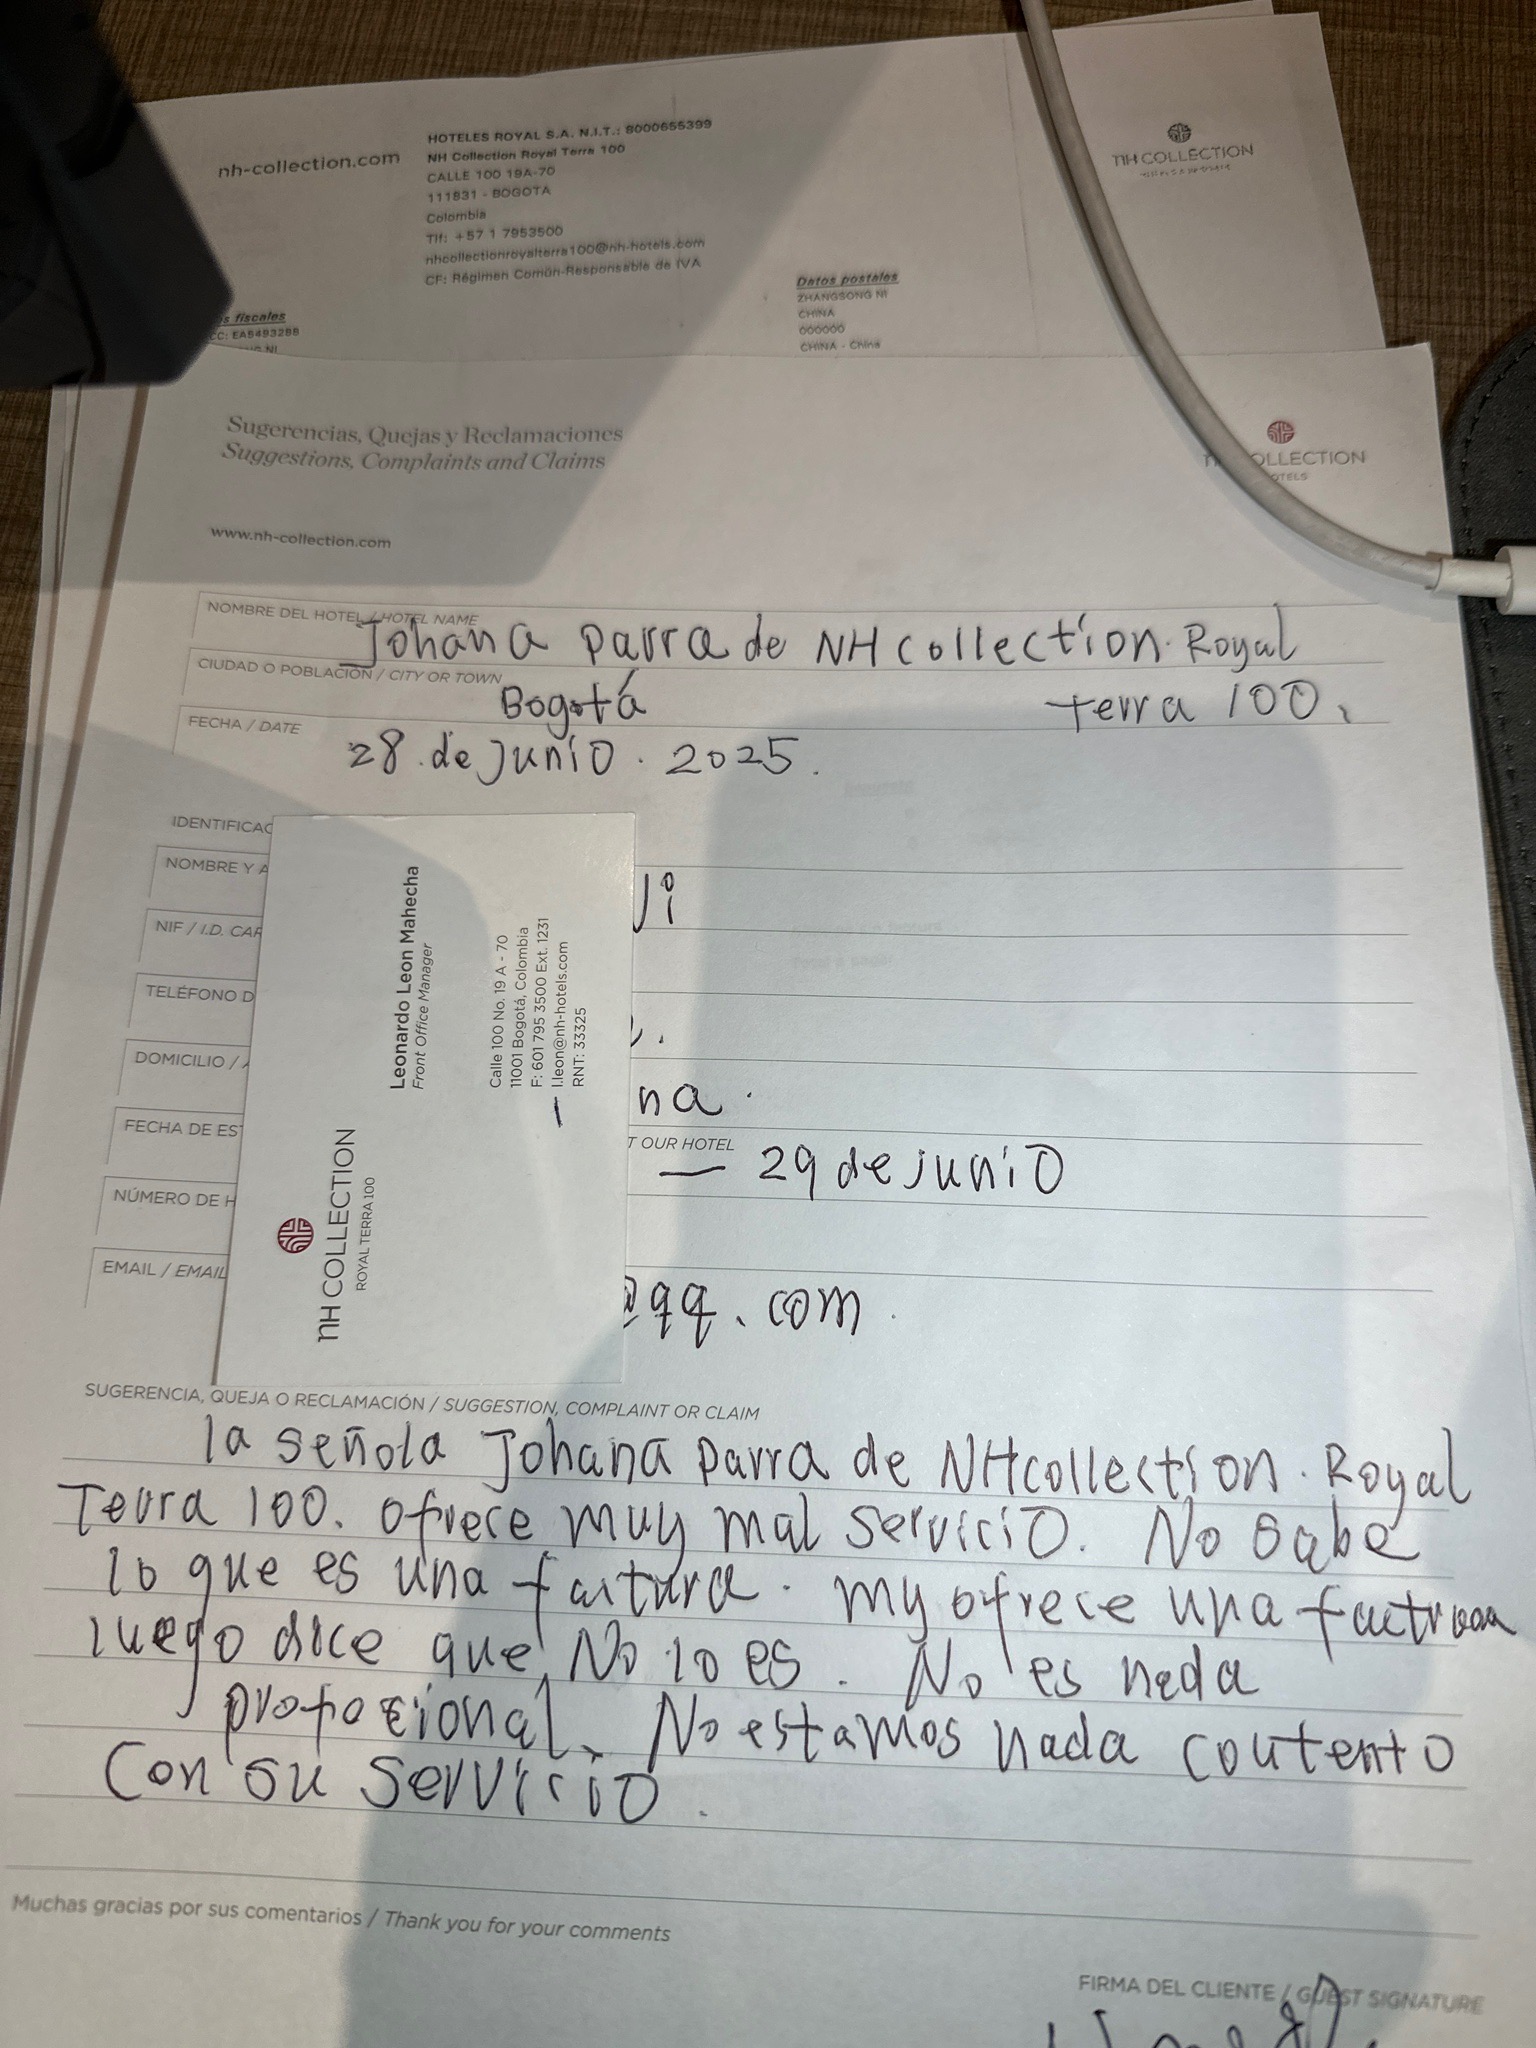 nh-collection.com
HOTELES ROYAL S.A. N.I.T.: 8000655399
NH Collection Royal Terra 100
CALLE 100 19A-70
111831 - BOGOTA
Colombia
Tlf: +57 1 7953500
nhcollectionroyalterra100@nh-hotels.com
CF: Régimen Común-Responsable de IVA
NH COLLECTION
s fiscales
CC: EA5493288
NI
Datos postales
ZHANGSONG NI
CHINA
000000
CHINA - China
Sugerencias, Quejas y Reclamaciones
Suggestions, Complaints and Claims
www.nh-collection.com
OLLECTION
OTELS
NOMBRE DEL HOTEL / HOTEL NAME
Johana parra de NH collection. Royal
CIUDAD O POBLACIÓN / CITY OR TOWN
Bogotá terra 100.
FECHA / DATE
28 de junio. 2025.
IDENTIFICAC
NOMBRE Y A
Ni
NIF / I.D. CAR
TELÉFONO D
DOMICILIO /
na.
FECHA DE EST
T OUR HOTEL
— 29 de junio
NÚMERO DE H
EMAIL / EMAIL
@qq.com.
Leonardo Leon Mahecha
Front Office Manager
Calle 100 No. 19 A - 70
11001 Bogotá, Colombia
F: 601 795 3500 Ext. 1231
l.leon@nh-hotels.com
RNT: 33325
NH COLLECTION
ROYAL TERRA 100
SUGERENCIA, QUEJA O RECLAMACIÓN / SUGGESTION, COMPLAINT OR CLAIM
la señola Johana parra de NHcollection. Royal
Terra 100. ofrece muy mal servicio. No sabe
lo que es una factura. my ofrece una
luego dice que No lo es. No es nada
No estamos nada contento
Con su servicio.
Muchas gracias por sus comentarios / Thank you for your comments
FIRMA DEL CLIENTE / GUEST SIGNATURE